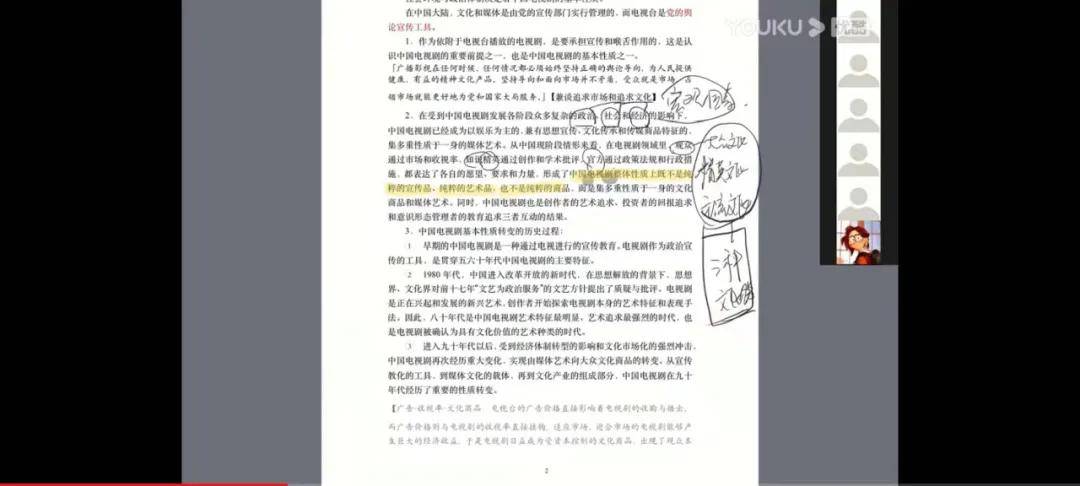 在中国大陆，文化和媒体是由党的宣传部门实行管理的，而电视台是党的舆
论宣传工具。
1．作为依附于电视台播放的电视剧，是要承担宣传和喉舌作用的，这是认
识中国电视剧的重要前提之一，也是中国电视剧的基本性质之一。
「广播影视在任何时候、任何情况都必须始终坚持正确的舆论导向，为人民提供
健康、有益的精神文化产品，坚持导向和面向市场并不矛盾，受众就是市场，占
领市场就能更好地为党和国家大局服务。」【兼谈追求市场和追求文化】
2．在受到中国电视剧发展各阶段众多复杂的政治、社会和经济的影响下，
中国电视剧已经成为以娱乐为主的，兼有思想宣传、文化传承和传媒商品特征的，
集多重性质于一身的媒体艺术。从中国现阶段情形来看，在电视剧领域里，观众
通过市场和收视率，知识精英通过创作和学术批评，官方通过政策法规和行政措
施，都表达了各自的愿望、要求和力量，形成了中国电视剧整体性质上既不是纯
粹的宣传品、纯粹的艺术品，也不是纯粹的商品，而是集多重性质于一身的文化
商品和媒体艺术。同时，中国电视剧也是创作者的艺术追求、投资者的回报追求
和意识形态管理者的教育追求三者互动的结果。
3．中国电视剧基本性质转变的历史过程：
1 早期的中国电视剧是一种通过电视进行的宣传教育。电视剧作为政治宣
传的工具，是贯穿五六十年代中国电视剧的主要特征。
2 1980 年代，中国进入改革开放的新时代，在思想解放的背景下，思想
界、文化界对前十七年“文艺为政治服务”的文艺方针提出了质疑与批评。电视剧
是正在兴起和发展的新兴艺术，创作者开始探索电视剧本身的艺术特征和表现手
法。因此，八十年代是中国电视剧艺术特征最明显、艺术追求最强烈的时代，也
是电视剧被确认为具有文化价值的艺术种类的时代。
3 进入九十年代以后，受到经济体制转型的影响和文化市场化的强烈冲击，
中国电视剧再次经历重大变化，实现由媒体艺术向大众文化商品的转变。从宣传
教化的工具，到媒体文化的载体，再到文化产业的组成部分，中国电视剧在九十
年代经历了重要的性质转变。
【广告·收视率·文化商品 电视台的广告价格直接影响着电视剧的收购与播出，
而广告价格则与电视剧的收视率直接挂钩，适应市场、迎合市场的电视剧能够产
生巨大的经济效益，于是电视剧日益成为受资本控制的文化商品，出现了观众本
2
大众文化
精英文化
主流文化
三种
文化
YOUKU 优酷